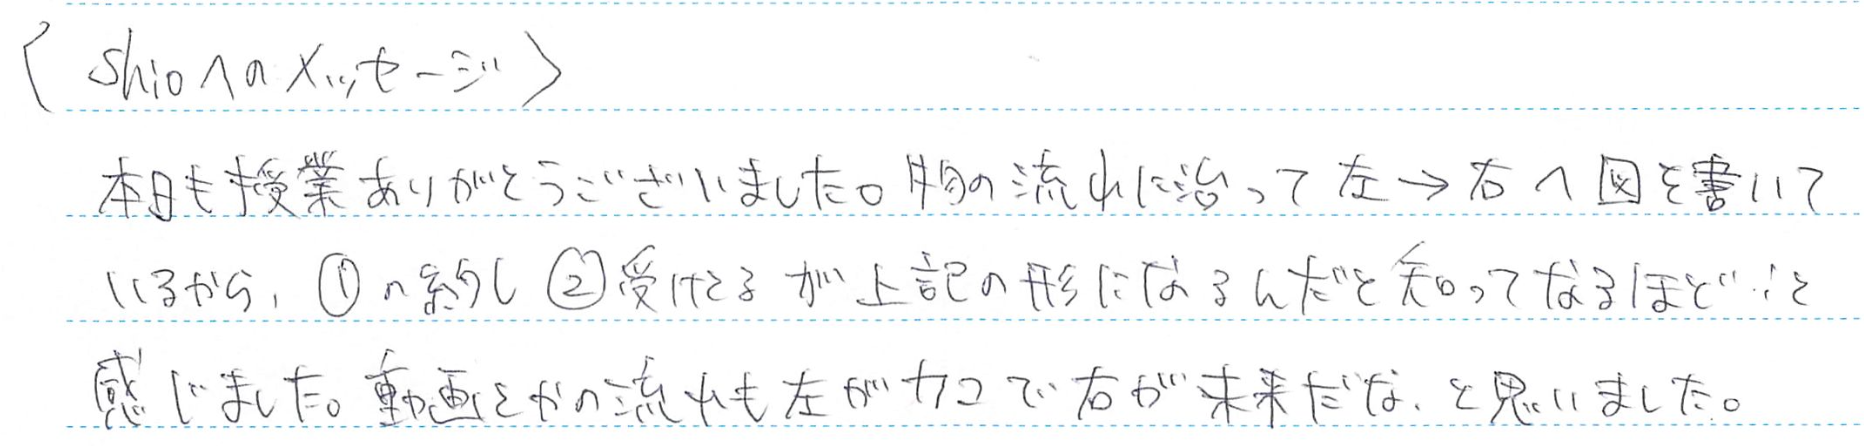 〈 Shioへのメッセージ 〉
本日も授業ありがとうございました。時の流れに沿って左→右へ図を書いて
いるから、①の約し②受けとるが上記の形になるんだと知ってなるほど…と
感じました。動画とかの流れも左がカコで右が未来だな、と思いました。